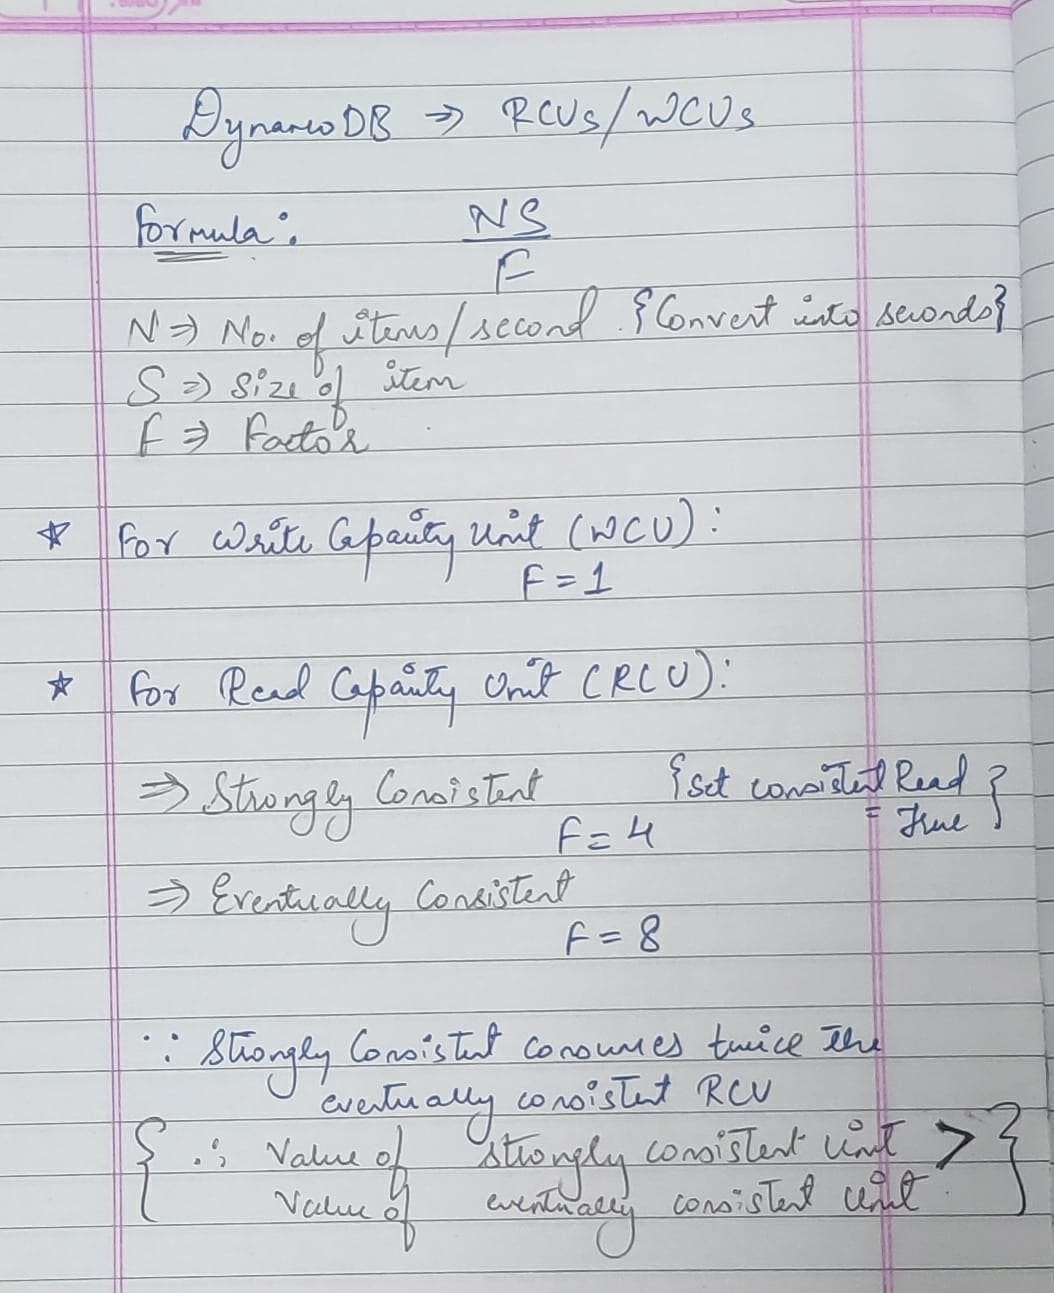 DynamoDB ⇒ RCUs/WCUs
formula: NS
F
N ⇒ No. of items/second. {Convert into seconds}
S ⇒ Size of item
f ⇒ factor
☆ for Write Capacity Unit (WCU):
F = 1
☆ for Read Capacity Unit (RCU):
⇒ Strongly Consistent {set consistent Read
= True}
F = 4
⇒ Eventually Consistent
F = 8
∵ Strongly Consistent consumes twice the
eventually consistent RCU
{∴ Value of strongly consistent unit >
Value of eventually consistent unit}